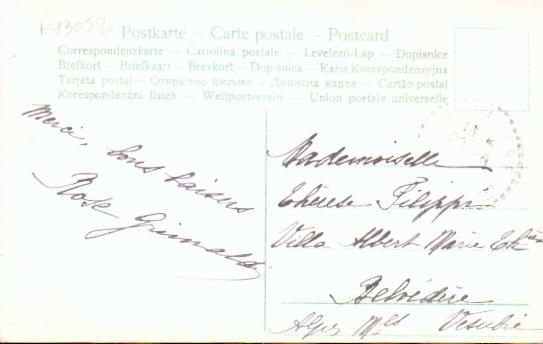 F13052
Postkarte – Carte postale – Postcard
Correspondenzkarte – Cartolina postale – Levelező-Lap – Dopisnice
Brefkort – Briefkaart – Brevkort – Dopisnica – Karta Korespondenzyjna
Tarjeta postal – Открытое письмо – Дописна карта – Cartão postal
Korespondenční listek – Weltpostverein – Union postale universelle
Merci, bons baisers
Rose Grimaldi
Mademoiselle
Thérèse Filippi
Villa Albert Marie
Belvédère
Alpes Mmes Vesubie